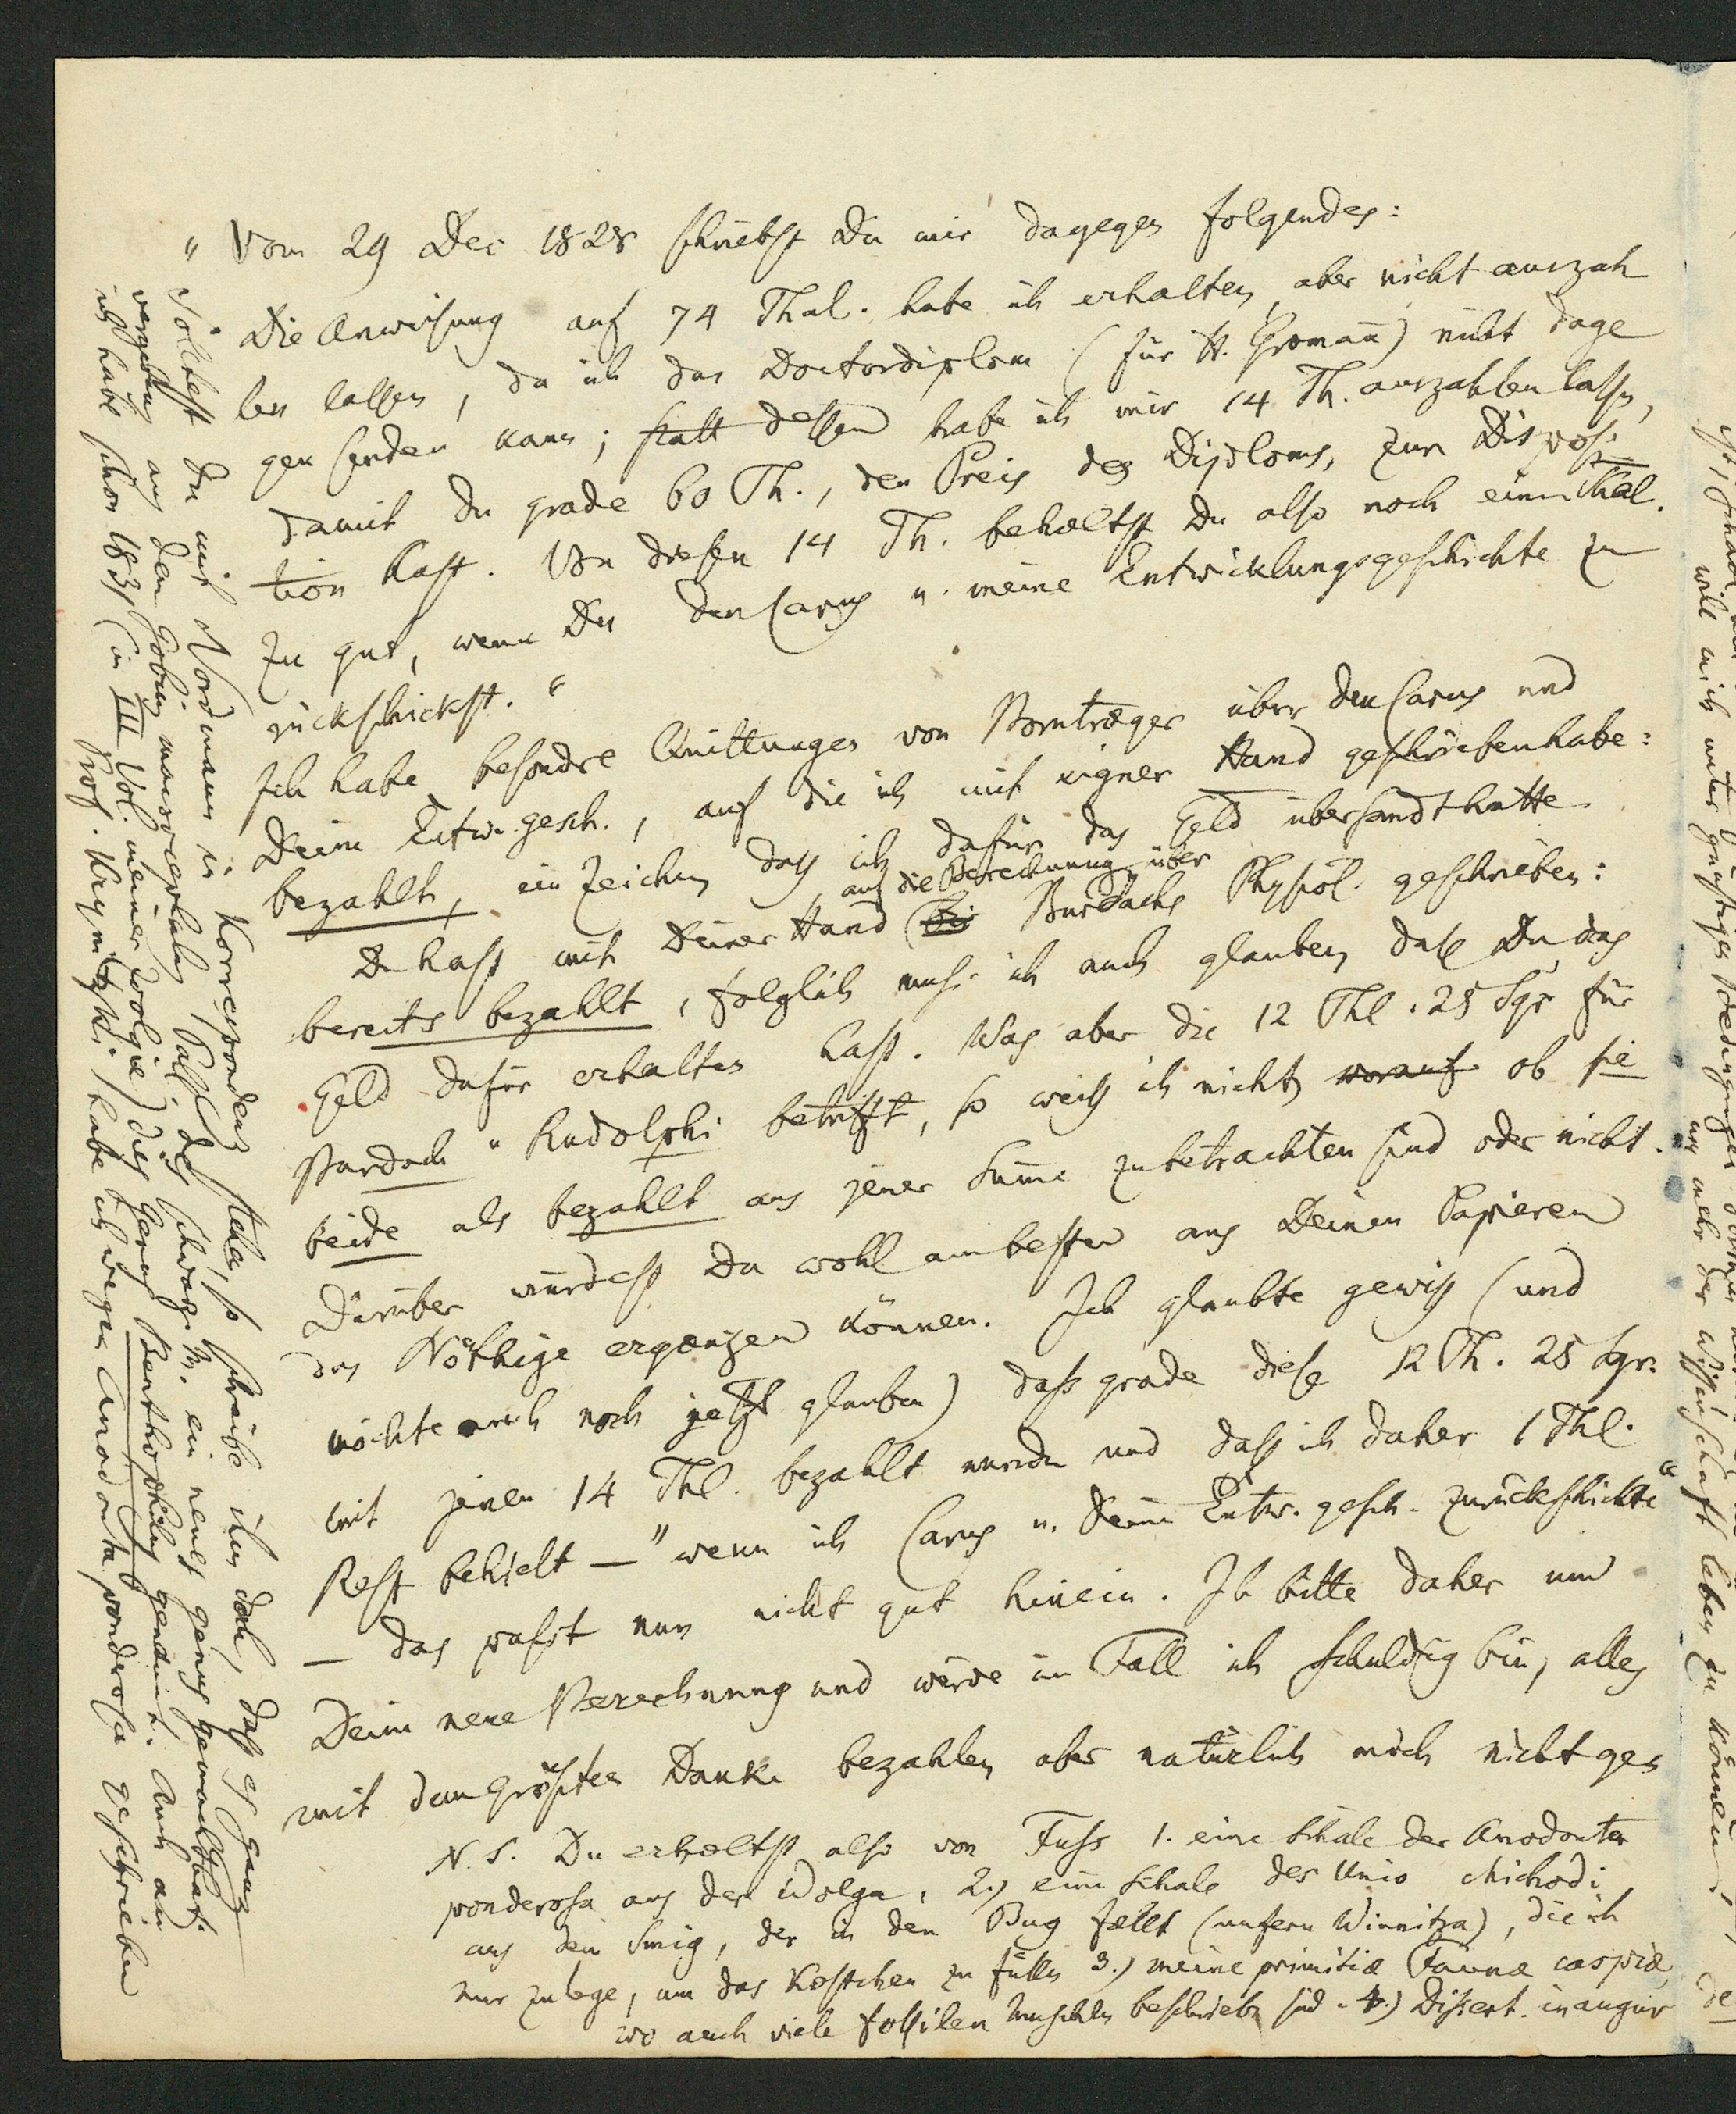 " Vom 29 Dec 1828 schriebst Du mir dagegen folgendes:
Die Anweisung auf 74 Thal. habe ich erhalten, aber nicht auszah
len lassen, da ich das Doctordiplom (für H. Gromann) nicht dage
gen senden kann; statt dessen habe ich mir 14 Th. auszahlen lassen,
damit Du grade 60 Th., den Preis des Diploms, zur Disposi
tion hast. Von diesen 14 Th. behæltst Du also noch einen Thal.
zu gut, wenn Du den Carus u. meine Entwicklungsgeschichte zu
rückschickst. "
Ich habe besondre Quittungen von Borntræger über den Carus und
Deine Entw. gesch., auf die ich mit eigner Hand geschrieben habe:
bezahlt, ein Zeichen daß ich dafür das Geld übersandt hatte
auf die Berechnung über
Du hast mit Deiner Hand (bei Burdachs Physiol. geschrieben:
bereits bezahlt, folglich muß ich auch glauben, daß Du das
Geld dafür erhalten hast. Was aber die 12 Thl. 25 Sgr für
Burdach u Rudolphi betrifft, so weiß ich nicht, worauf ob sie
beide als bezahlt aus jener Summe zu betrachten sind oder nicht.
Darüber würdest Du wohl am besten aus Deinen Papieren
das Nöthige ergænzen können. Ich glaubte gewiß (und
möchte auch noch jetzt glauben) daß grade diese 12 Th. 25 Sgr.
mit jenen 14 Thl. bezahlt wurden und daß ich daher 1 Thl.
Rest behielt — "wenn ich Carus u. Deine Entw. gesch. zurückschickte"
— das paßt nun nicht gut hinein. Ich bitte daher um
Deine neue Berechnung und werde im Fall ich schuldig bin, alles
mit dem größten Danke bezahlen, aber natürlich mich nicht ger
N. S. Du erhæltst also von Fuss 1. eine Schale der Anodonta
ponderosa aus der Wolga, 2.) eine Schale des Unio Michodi
aus dem Smig, der in den Bug fællt (unfern Winnitza), die ich
nur zulege, um das Kæstchen zu füllen 3.) meine primitiæ Faunæ caspiæ,
wo auch viele fossilen Muscheln beschrieben sind. 4.) Dissert. inaugur
Solltest Du mit Nordmann in Korrespondenz stehen, so schreibe ihm doch, daß er ganz
aus den Gobius macrocephalus Pall. des schwarz. M. ein neues genus gemacht hat:
ich habe schon 1831 (in III Vol. meiner Zoologie) dies genus Benthophilus genannt. Auch an
Prof. Krynitzki habe ich wegen Anodonta ponderosa geschrieben